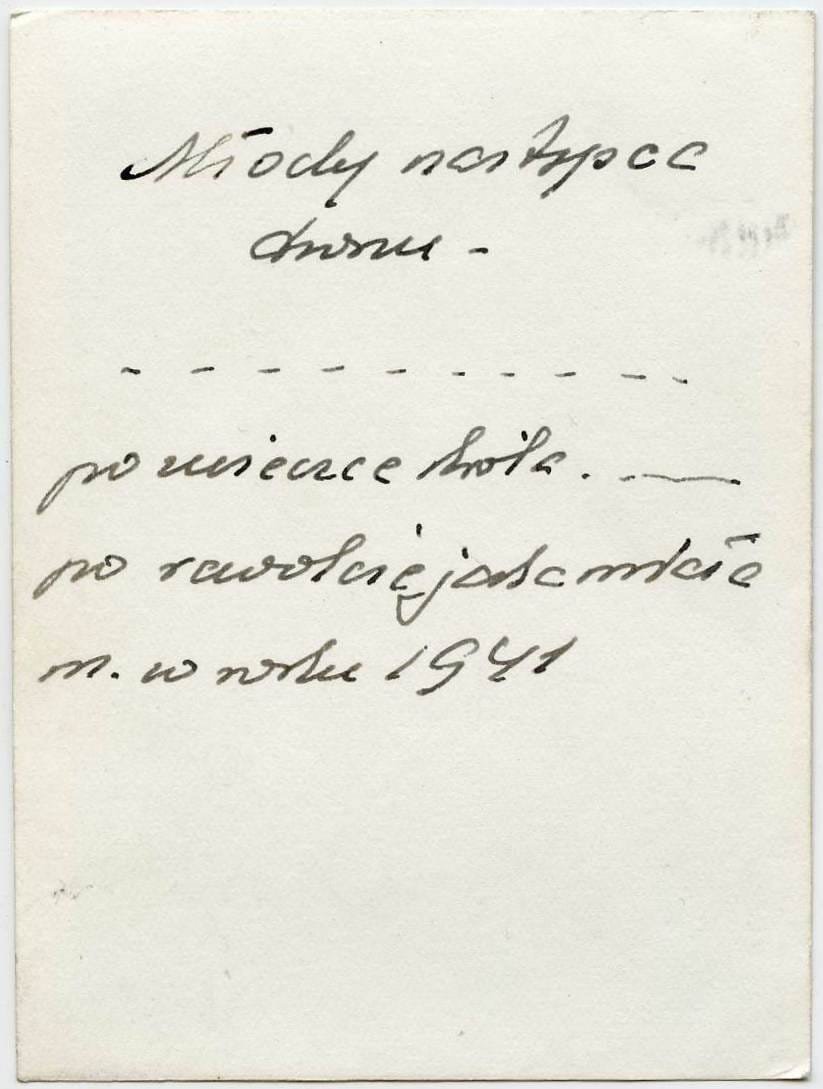 Młody następca
tronu -
- - - - - - - - -
po ucieczce króla. —
po rewolucji jaka miała
m. w roku 1941